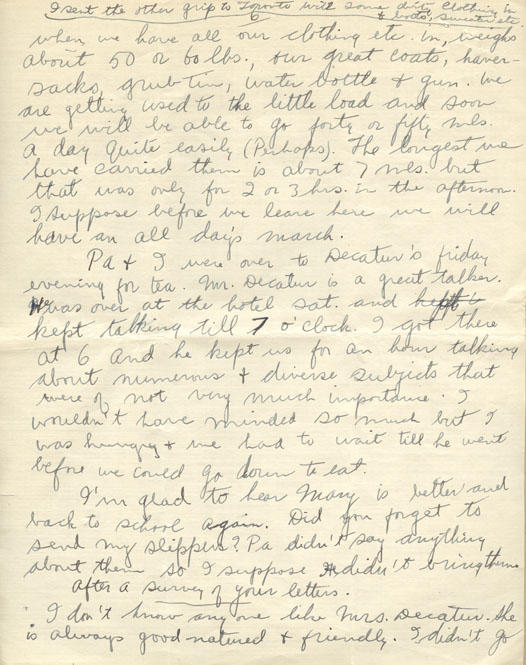 I sent the other grip to Toronto with some dirty clothing in
6 & boots, sweater etc.
when we have all our clothing etc. in, weighs
about 50 or 60 lbs., our great coats, haver-
sacks, grub tin, water bottle & gun. We
are getting used to the little load and soon
we will be able to go forty or fifty mls.
a day quite easily (Perhaps). The longest we
have carried them is about 7 mls. but
that was only for 2 or 3 hrs. in the afternoon.
I suppose before we leave here we will
have an all day's march.
Pa & I were over to Decatur's friday
evening for tea. Mr. Decatur is a great talker.
He was over at the hotel Sat. and
kept talking till 7 o'clock. I got there
at 6 and he kept us for an hour talking
about numerous & diverse subjects that
were of not very much importance. I
wouldn't have minded so much but I
was hungry & we had to wait till he went
before we could go down to eat.
I'm glad to hear Mary is better and
back to school again. Did you forget to
send my slippers? Pa didn't say anything
about them so I suppose He didn't bring them
after a survey of your letters.
I don't know any one like Mrs. Decatur. She
is always good natured & friendly. I didn't go